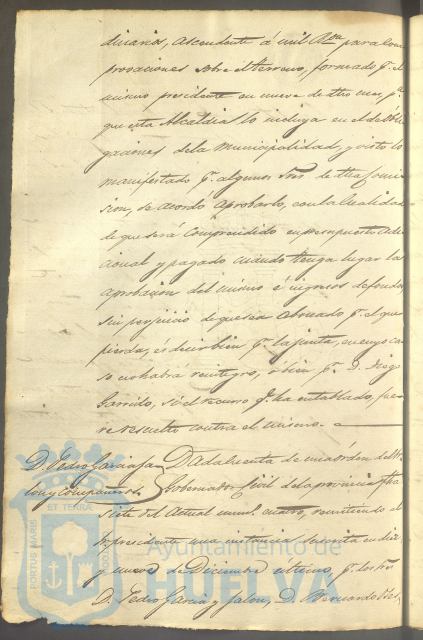 dinarios, ascendente á mil R.on para Com
provaciones sobre el terreno, formado p.r el
mismo presidente en nueve de dho mes, p.a
que esta Alcaldia lo incluya en el de obli
gaciones de la Municipalidad, y visto lo
manifestado p.r algunos Sres de dha Comi
sion, se acordó aprobarlo, con la Cualidad
de que será Comprendido en presupuesto adi
cional y pagado cuando tenga lugar la
aprobacion del mismo é ingresos de fondos,
sin perjuicio de que sea abonado p.r el que
pierda, és decir bien p.r la junta, en cuyo ca
so no habrá reintegro, ó bien p.r D. Diego
Garrido, si el recurso q.e ha entablado, fue
re resuelto contra el mismo.
D. Pedro Garcia Ja
lon y Compañeros
Dada cuenta de una órden del S.
Gobernador Civil de la provincia fha
siete del Actual num.o cuatro, remitiendo al
S. presidente una instancia suscrita en diez
y nueve de Diciembre ultimo p.r los Sres
D. Pedro Garcia y Jalon, D. Bernardo
PORTUS MARIS ET TERRAE CUSTODIA
Ayuntamiento de
HUELVA